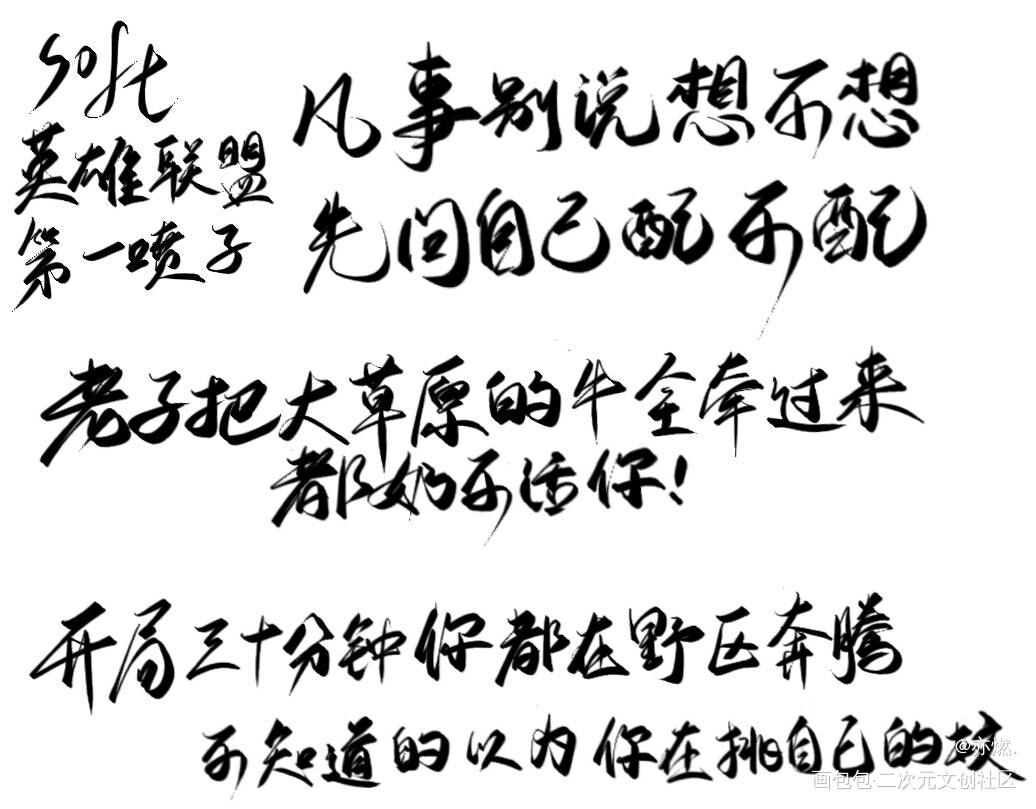 soft
英雄联盟
第一喷子
凡事别说想不想
先问自己配不配
老子把大草原的牛全牵过来
都奶不活你!
开局三十分钟你都在野区奔腾
不知道的以为你在挑自己的坟
@亦燃.
画包包·二次元文创社区